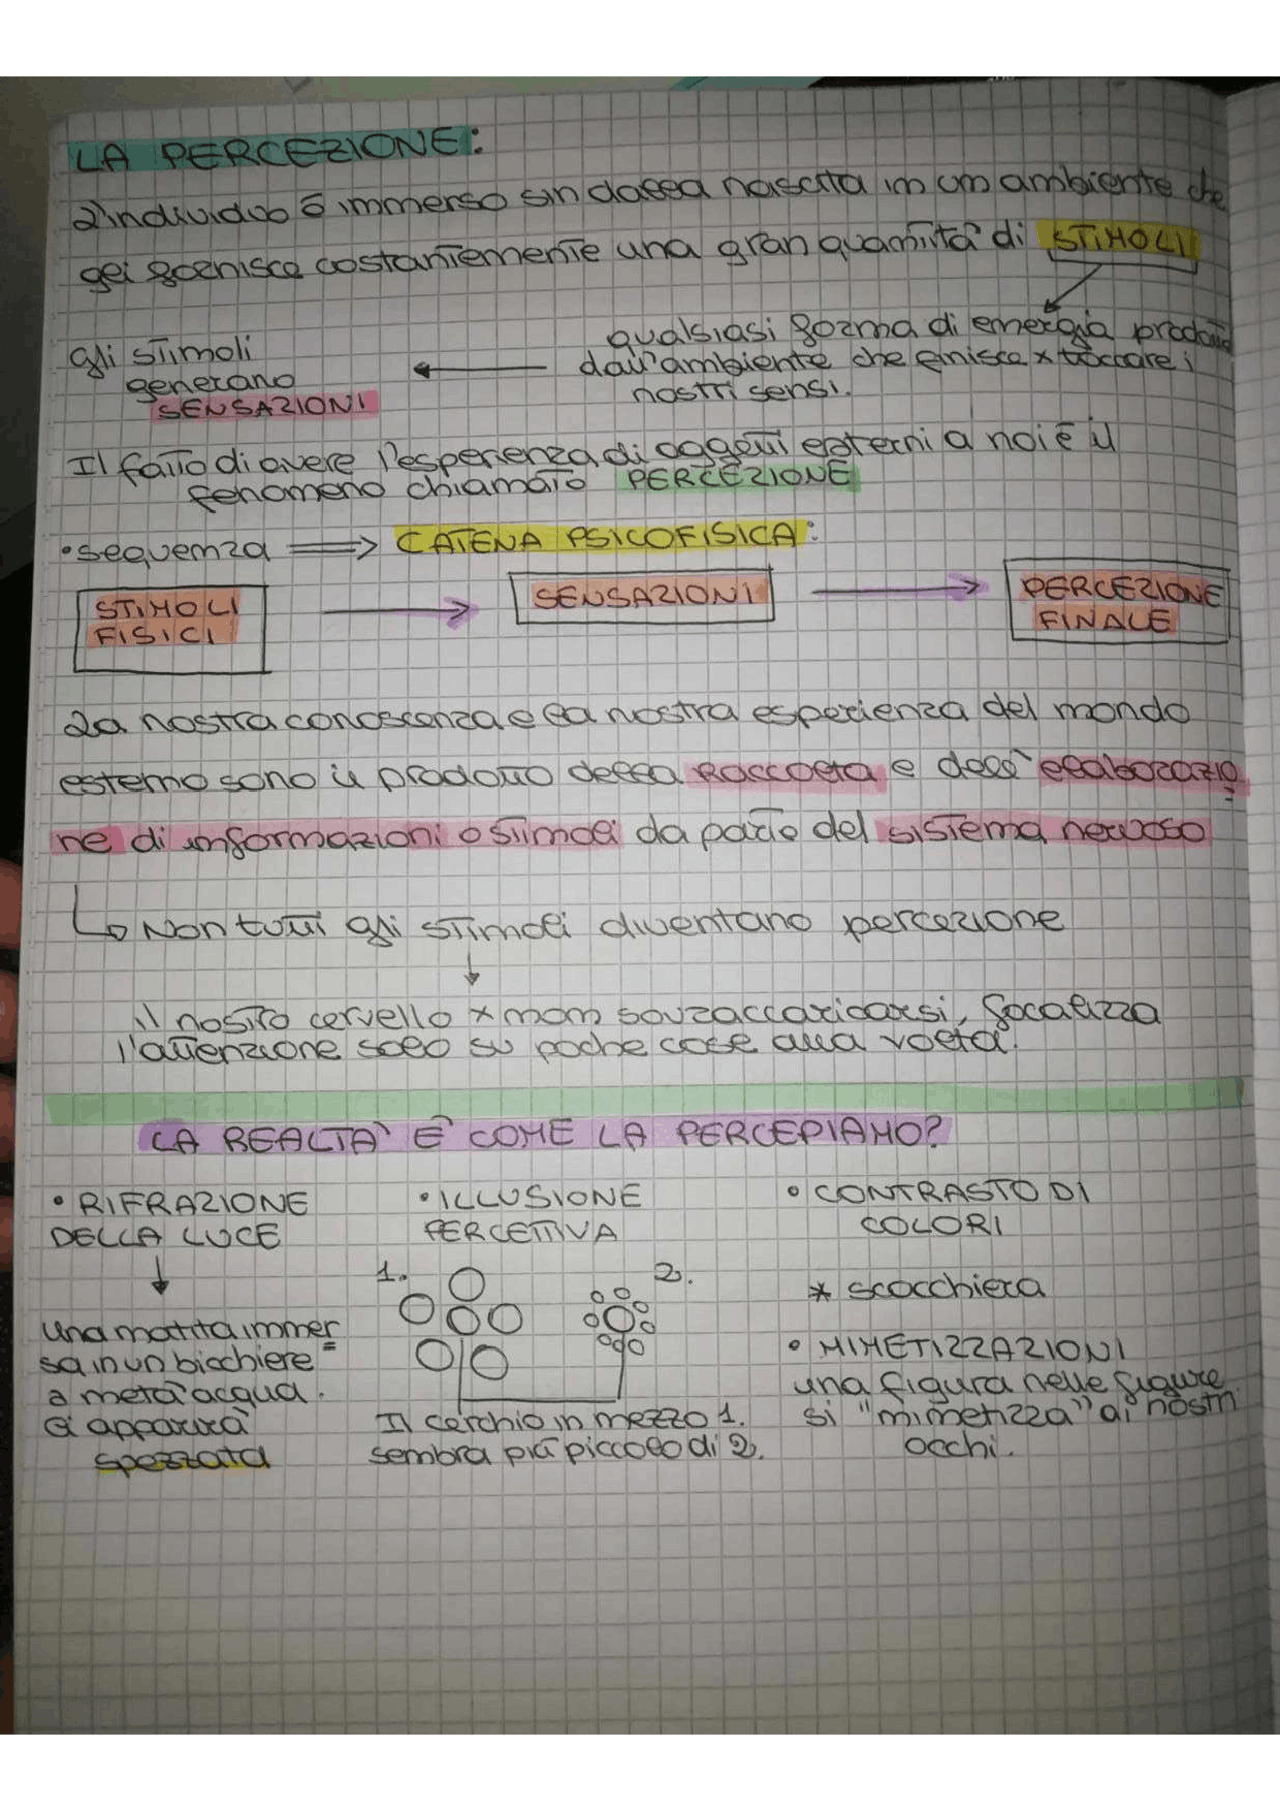 LA PERCEZIONE:
L'individuo è immerso sin dalla nascita in un ambiente che
gli fornisce costantemente una gran quantità di STIMOLI
qualsiasi forma di energia prodotta
dall'ambiente che finisce x toccare i
nostri sensi.
gli stimoli
generano
SENSAZIONI
Il fatto di avere l'esperienza di oggetti esterni a noi è il
fenomeno chiamato PERCEZIONE
• sequenza ⟹ CATENA PSICOFISICA:
STIMOLI
FISICI
SENSAZIONI
PERCEZIONE
FINALE
La nostra conoscenza e la nostra esperienza del mondo
esterno sono il prodotto della raccolta e dell'elaborazio
ne di informazioni o stimoli da parte del sistema nervoso
Non tutti gli stimoli diventano percezione
il nostro cervello x non sovraccaricarsi, focalizza
l'attenzione solo su poche cose alla volta.
LA REALTA' È COME LA PERCEPIAMO?
• RIFRAZIONE
DELLA LUCE
una matita immer
sa in un bicchiere
a metà acqua.
Ci apparirà
spezzata
• ILLUSIONE
PERCETTIVA
1.
2.
Il cerchio in mezzo 1.
sembra più piccolo di 2.
• CONTRASTO DI
COLORI
* scacchiera
• MIMETIZZAZIONI
una figura nelle figure
si "mimetizza" ai nostri
occhi.